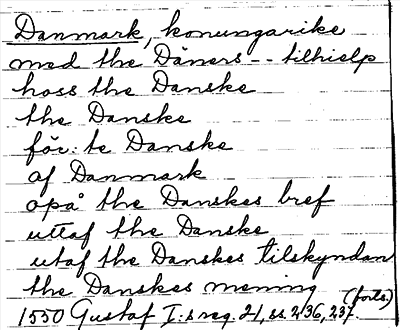 Danmark, konungarike
med the Däners -- tilhielp
hoss the Danske
the Danske
för: te Danske
af Danmark
opå the Danskes bref
uttaf the Danske
utaf the Danskes tilskyndan
the Danskes mening
(forts.)
1550 Gustaf I:s reg. 21, ss. 236, 237.